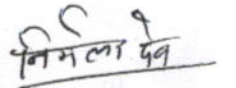 निर्मला देव